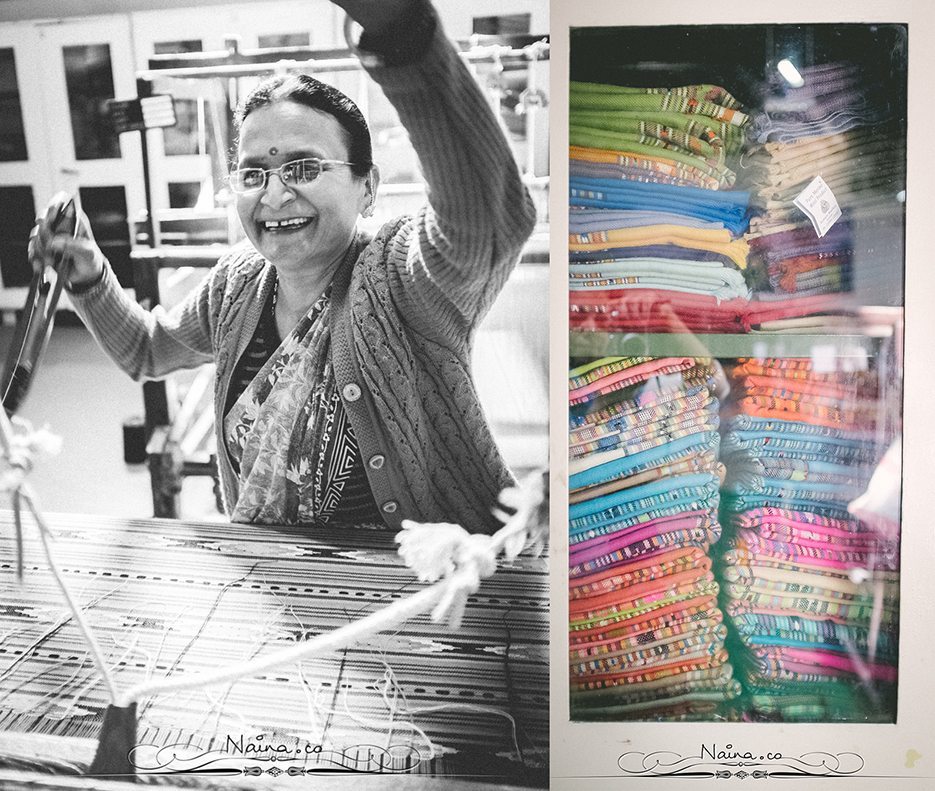 Naina.co
Naina.co